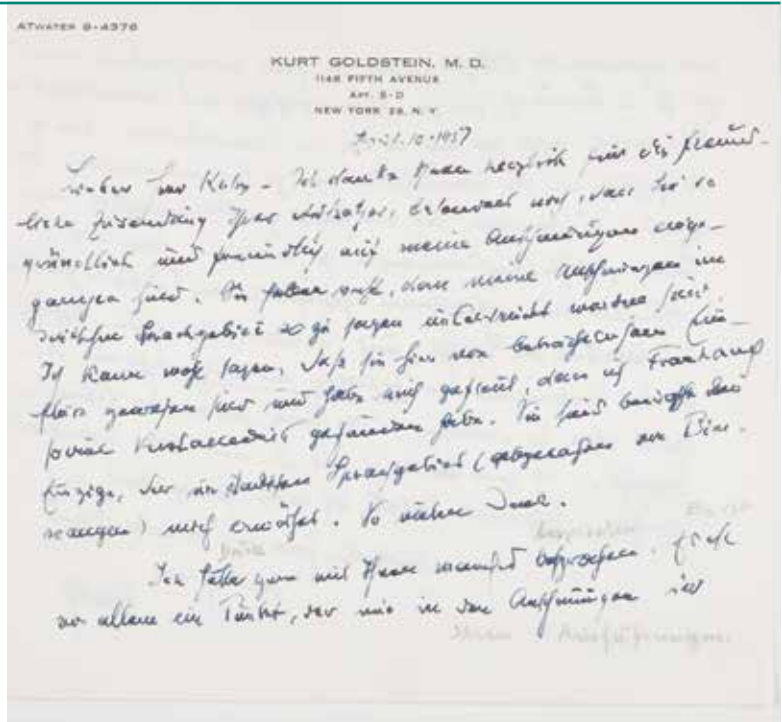 ATWATER 9-4376
KURT GOLDSTEIN, M. D.
1148 FIFTH AVENUE
APT. 5-D
NEW YORK 28, N. Y.
April 10 - 1957
Lieber Herr Kuhn - Ich danke Ihnen herzlich für die freund-
liche Zusendung Ihres Aufsatzes, besonders auch, dass Sie so
gründlich und freundlich auf meine Anschauungen einge-
gangen sind. Sie haben recht, dass meine Anschauungen im
deutschen Sprachgebiet so zu sagen unterdrückt worden sind.
Ich kann wohl sagen, dass sie hier von beträchtlichem Ein-
fluss gewesen sind und habe mich gefreut, dass ich in Frankreich
soviel Verständnis gefunden habe. Sie sind der
Einzige, der im deutschen Sprachgebiet (abgesehen von Bins-
wanger) mich erwähnt. So vielen Dank.
Ich hätte gern mit Ihnen manches besprochen.
vor allem ein Punkt, der mir in den Anschauungen
Ihren Ausführungen